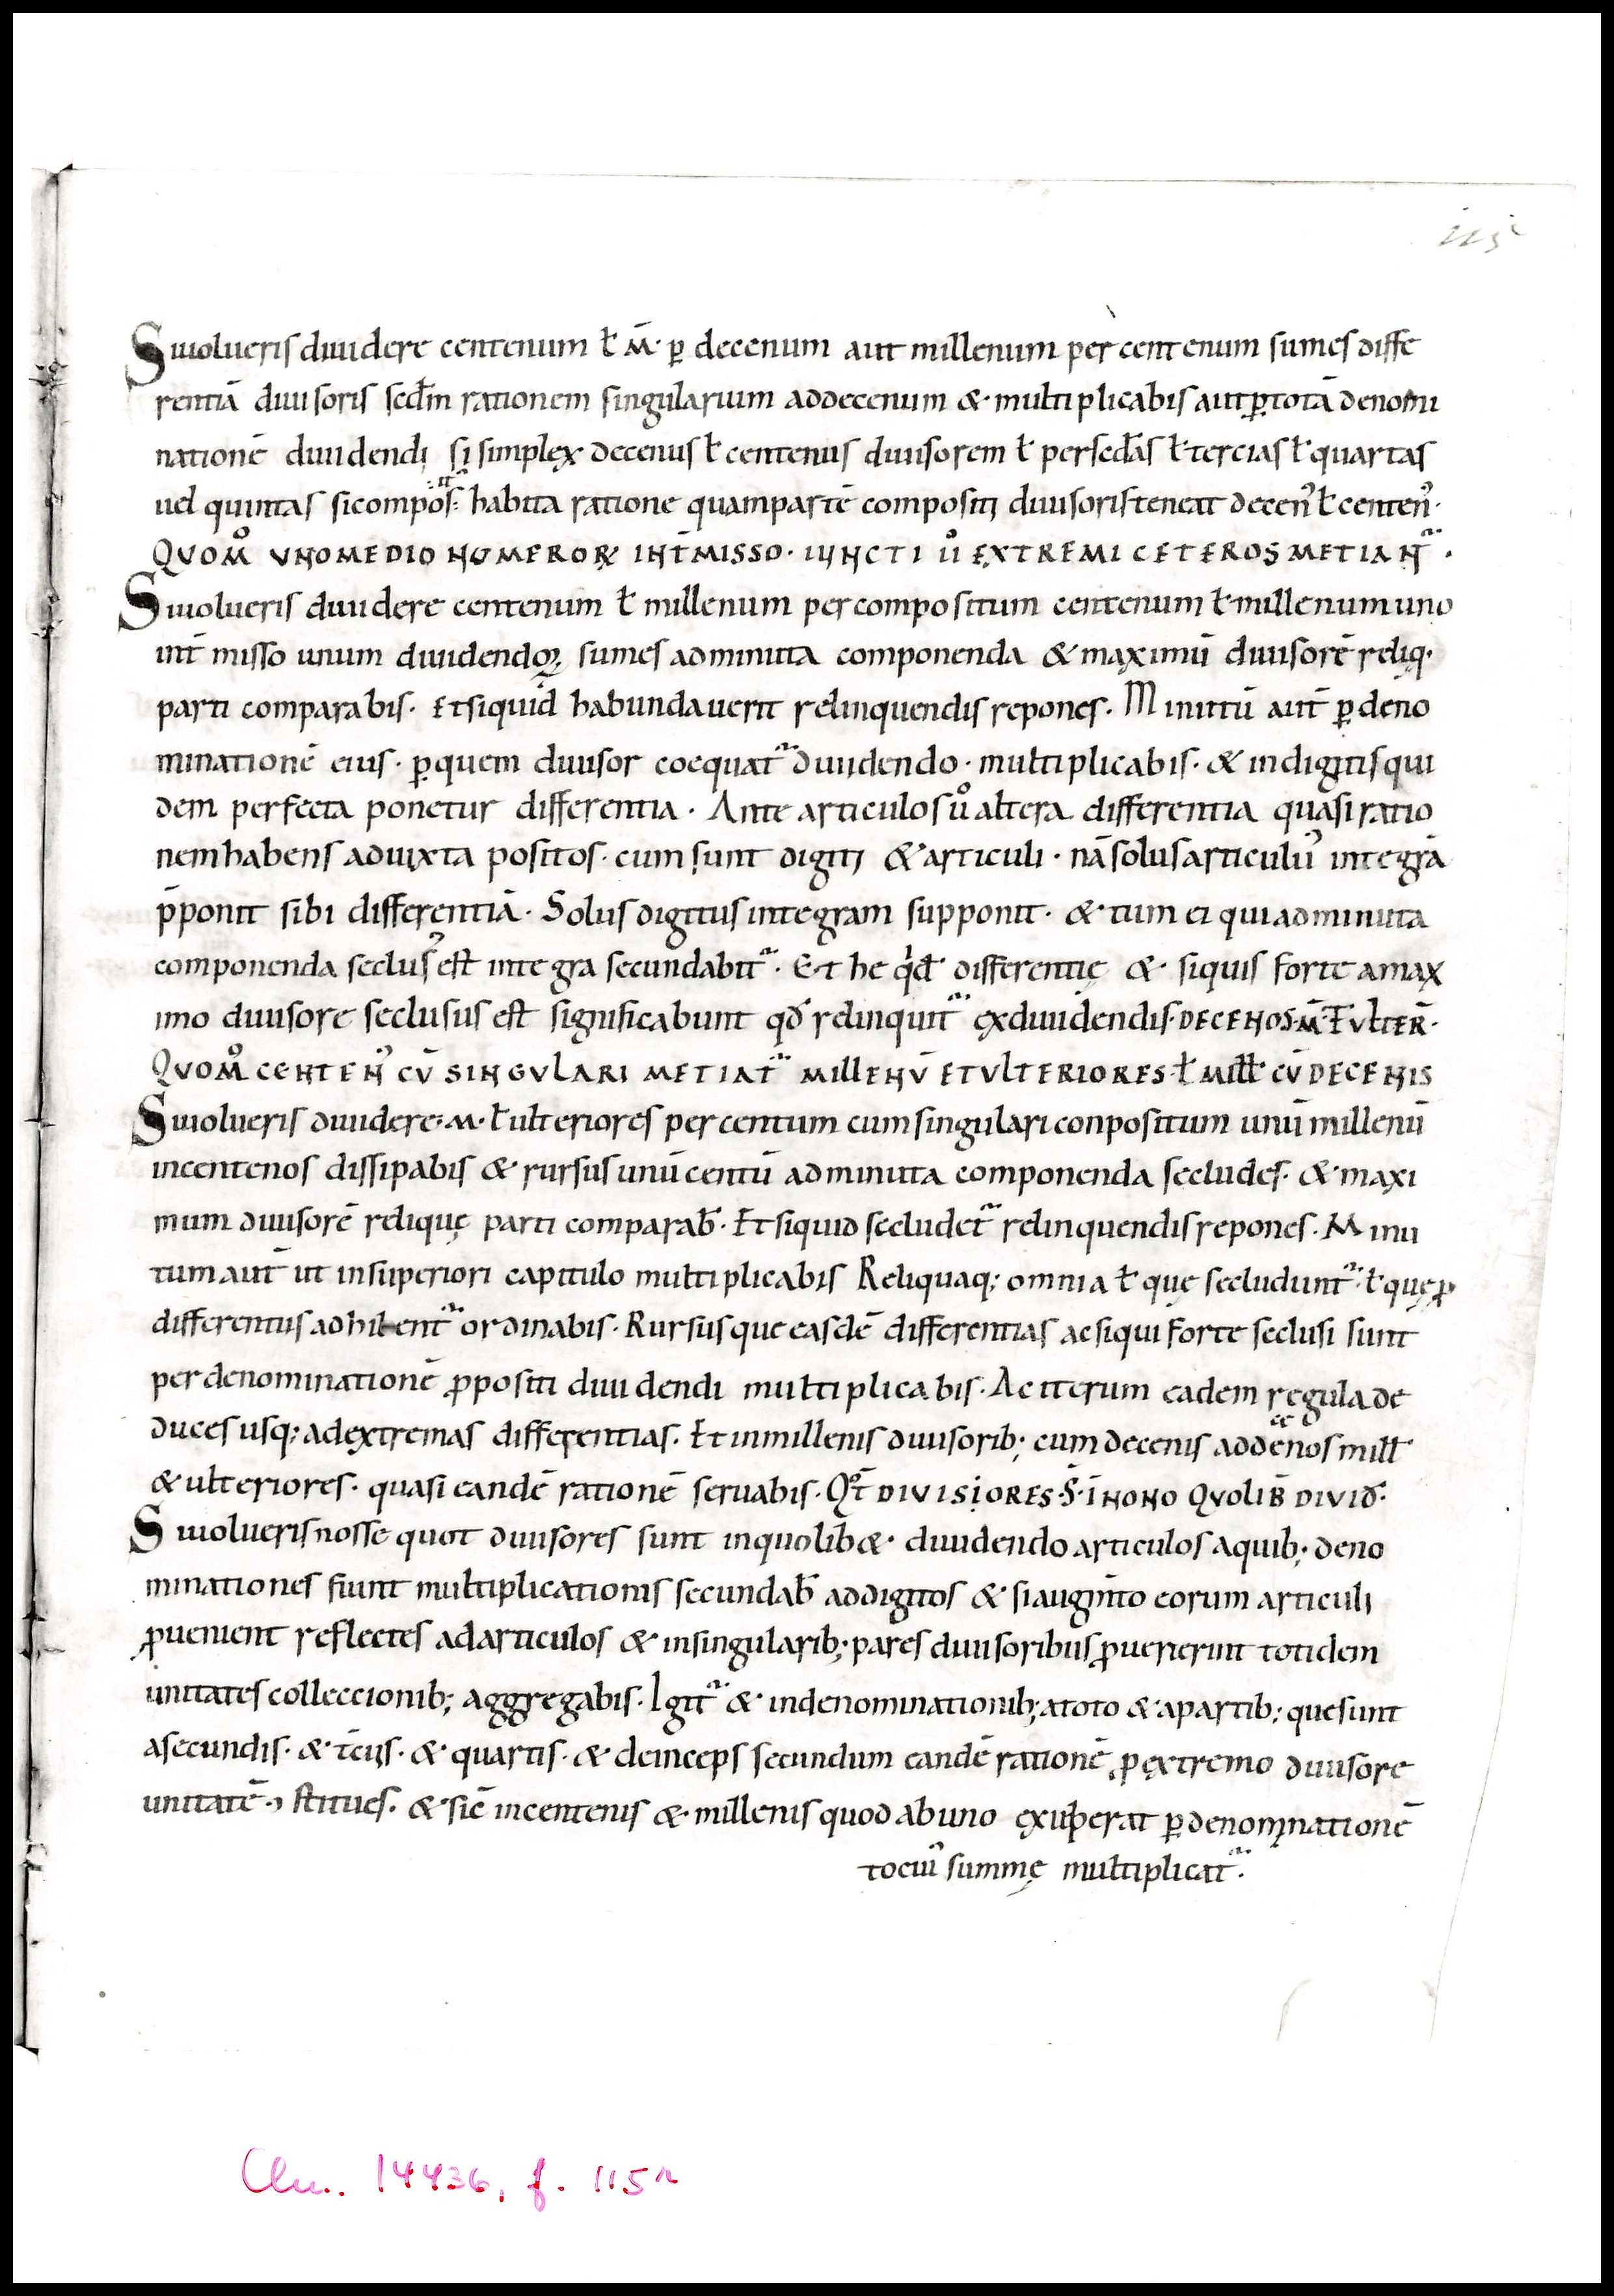 115
Siuolueris diuidere centenum ł M̄· p̱ decenum aut millenum per centenum sumes diffe
rentiā diuisoris secd̄m rationem singularium addecenum &· multiplicabis aut p̱ totā denomi
nationē diuidendi si simplex decenus ł centenus diuisorem ł persecd̄as ł tercias ł quartas
uel quintas sicompos habita ratione quampartē compositi diuisoris teneat decen᾿ ł centen᾿·
QUOM̊ UNOMEDIO NUMEROꝜ INT̄MISSO· IUNCTI ů EXTREMI CETEROS METIANT᷑·
Siuolueris diuidere centenum ł millenum percompositum centenum ł millenum uno
int̄ misso unum diuidendoꝝ sumes adminuta componenda &·maximū diuisorē reliq·
parti comparabis· Etsiquid habundauerit relinquendis repones· Minutū aut̄ p̱ deno
minationē eius· p̱quem diuisor coequat᷑ diuidendo· multiplicabis· & indigitis qui
dem perfecta ponetur differentia· Ante articulos ů altera differentia quasi ratio
nem habens ad iuxta positos· cum sunt digiti &·articuli· nā solus articulus᾿ integrā
p̄ponit sibi differentiā· Solus digitus integram supponit· &·tum ei qui adminuta
componenda seclus᾿ est integra secundabit᷑· Et he qd̄ differentię &· siquis forte amax
imo diuisore seclusus est significabunt qđ relinquit᷑ exdiuidendis· DECENOS·M̄·ET̄ULTER̄·
QUOM̊ CENTEN᾿ CŪ SINGULARI METIAT᷑ MILLENŪ ETULTERIORES·ł MILL̄ CŪ DECENIS
Siuolueris diuidere·M·ł ulteriores per centum cum singulari conpositum unū millenū
incentenos dissipabis &·rursus unū centū adminuta componenda secludes· &·maxi
mum diuisorē reliquę parti comparab̄· Etsiquid secludet᷑ relinquendis repones· Minu
tum aut̄ ut insuperiori capitulo multiplicabis Reliquaq; omnia ł quę secludunt᷑·ł quę ꝓ
differentiis adhibent᷑ ordinabis· Rursusque easdē differentias ac siqui forte seclusi sunt
per denominationē ꝓpositi diuidendi multiplicabis· Ac iterum eadem regula de
duces usq; adextremas differentias· Et inmillenis diuisorib; cum decenis addecenos mill̄
& ulteriores· quasi eandē rationē seruabis· QT̊ DIVISIORES·S̄·INONO QUOLIB̄ DIVID·
Siuolueris nosse quot diuisores sunt inquolib&· diuidendo articulos aquib; deno
minationes fiunt multiplicationis secundab̄ addigitos &·siaugm̄to eorum articuli
ꝓuenient reflectes adarticulos &·insingularib; pares diuisoribus ꝓuenerint totidem
unitates colleccionib; aggregabis· Igit᷑ &· indenominationib; atoto &·apartib; que sunt
asecundis· &·tc̄iis· &·quartis· &·deinceps secundum eandē rationē ꝓ extremo diuisore
unitatē ꝯstitues· &·sic̄ incentenis &·millenis quod abuno exuperat p̱ denominationē
tociu᾿ summę multiplicat᷑·
Clm. 14436, f. 115r